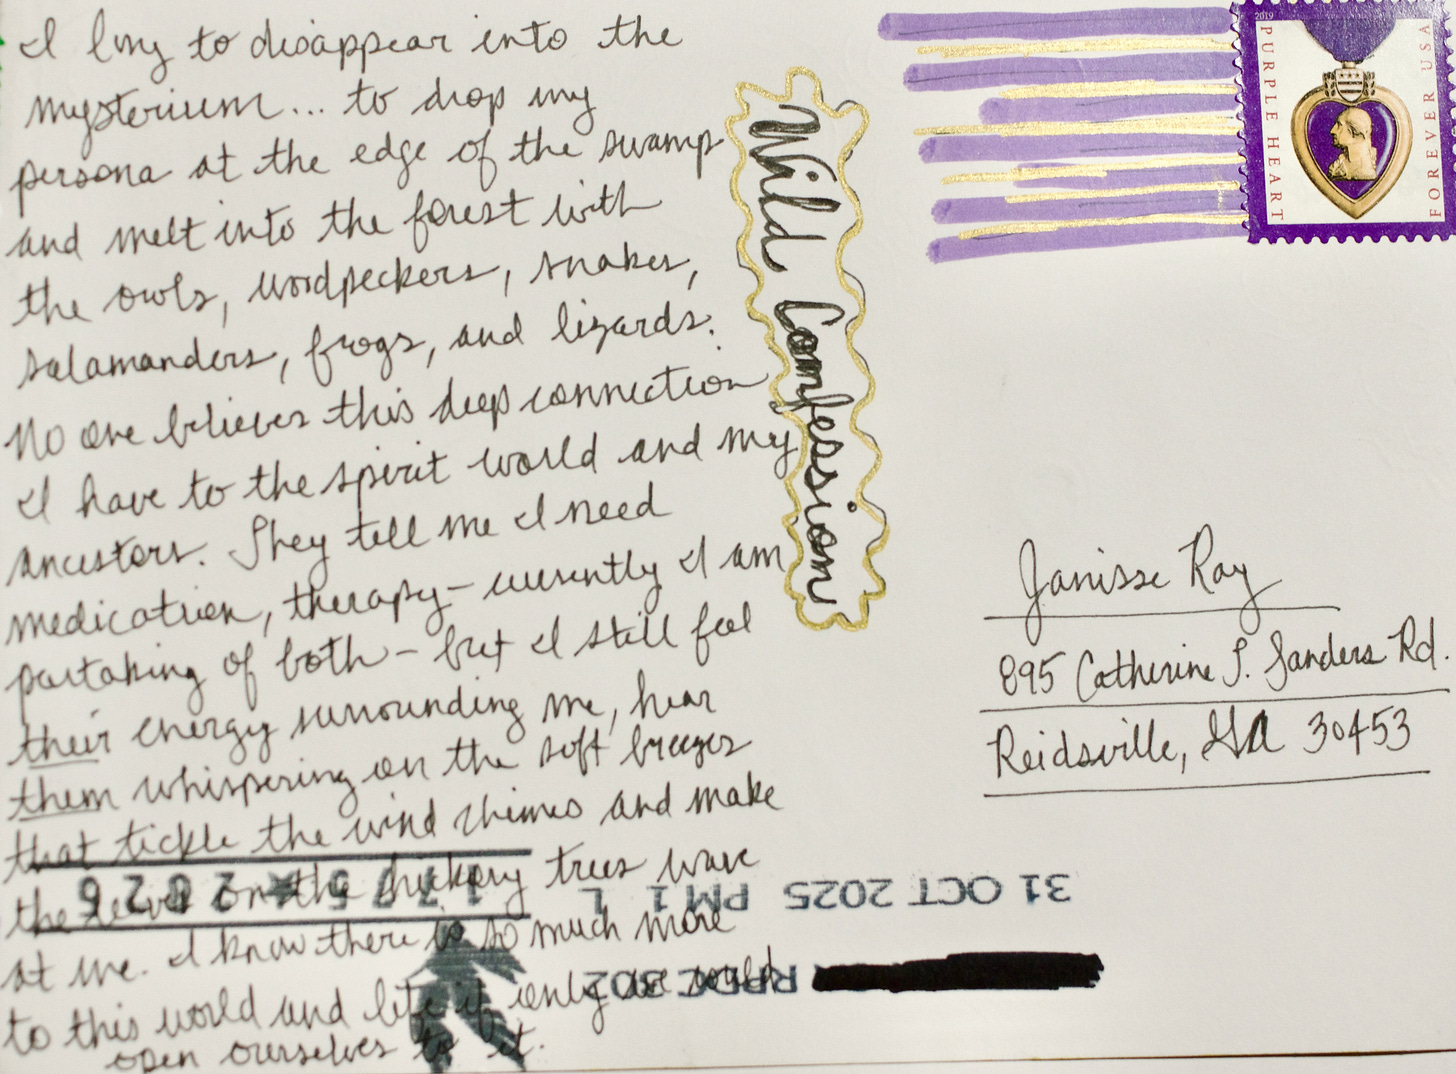 I long to disappear into the
mysterium... to drop my
persona at the edge of the swamp
and melt into the forest with
the owls, woodpeckers, snakes,
salamanders, frogs, and lizards.
No one believes this deep connection
I have to the spirit world and my
ancestors. They tell me I need
medication, therapy – currently I am
partaking of both – but I still feel
their energy surrounding me, hear
them whispering on the soft breezes
that tickle the wind chimes and make
the leaves on the hickory trees wave
at me. I know there is so much more
to this world and life if only we would
open ourselves to it.
Wild Confession
2019
PURPLE HEART
FOREVER USA
Janisse Ray
895 Catherine T. Sanders Rd.
Reidsville, GA 30453
31 OCT 2025 PM 1 L
RPDC 302